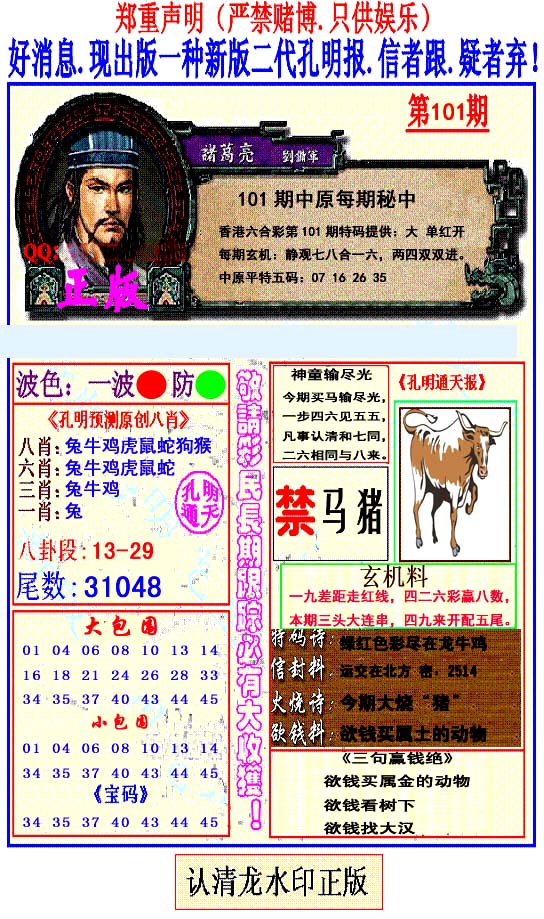 郑重声明（严禁赌博.只供娱乐）
好消息.现出版一种新版二代孔明报.信者跟.疑者弃!
第101期
諸葛亮 劉備軍
101 期中原每期秘中
香港六合彩第 101 期特码提供：大 单红开
每期玄机：静观七八合一六，两四双双进。
中原平特五码：07 16 26 35
QQ:
正版
波色：一波 防
《孔明预测原创八肖》
八肖:兔牛鸡虎鼠蛇狗猴
六肖:兔牛鸡虎鼠蛇
三肖:兔牛鸡
一肖:兔
孔明
通天
八卦段:13-29
尾数:31048
大包围
01 04 06 08 10 13 14
16 18 21 24 26 28 33
34 35 37 40 43 44 45
小包围
01 04 06 08 10 13 14
34 35 37 40 43 44 45
《宝码》
34 35 37 40 43 44 45
敬請彩民長期跟踪必有大收獲！
神童输尽光
今期买马输尽光，
一步四六见五五，
凡事认清和七同，
二六相同与八来。
《孔明通天报》
禁马猪
玄机料
一九差距走红线，四二六彩赢八数，
本期三头大连串，四九来开配五尾。
特码诗：绿红色彩尽在龙牛鸡
信封料：运交在北方 密．2514
火烧诗：今期大烧“猪”
欲钱料：欲钱买属土的动物
《三句赢钱绝》
欲钱买属金的动物
欲钱看树下
欲钱找大汉
认清龙水印正版